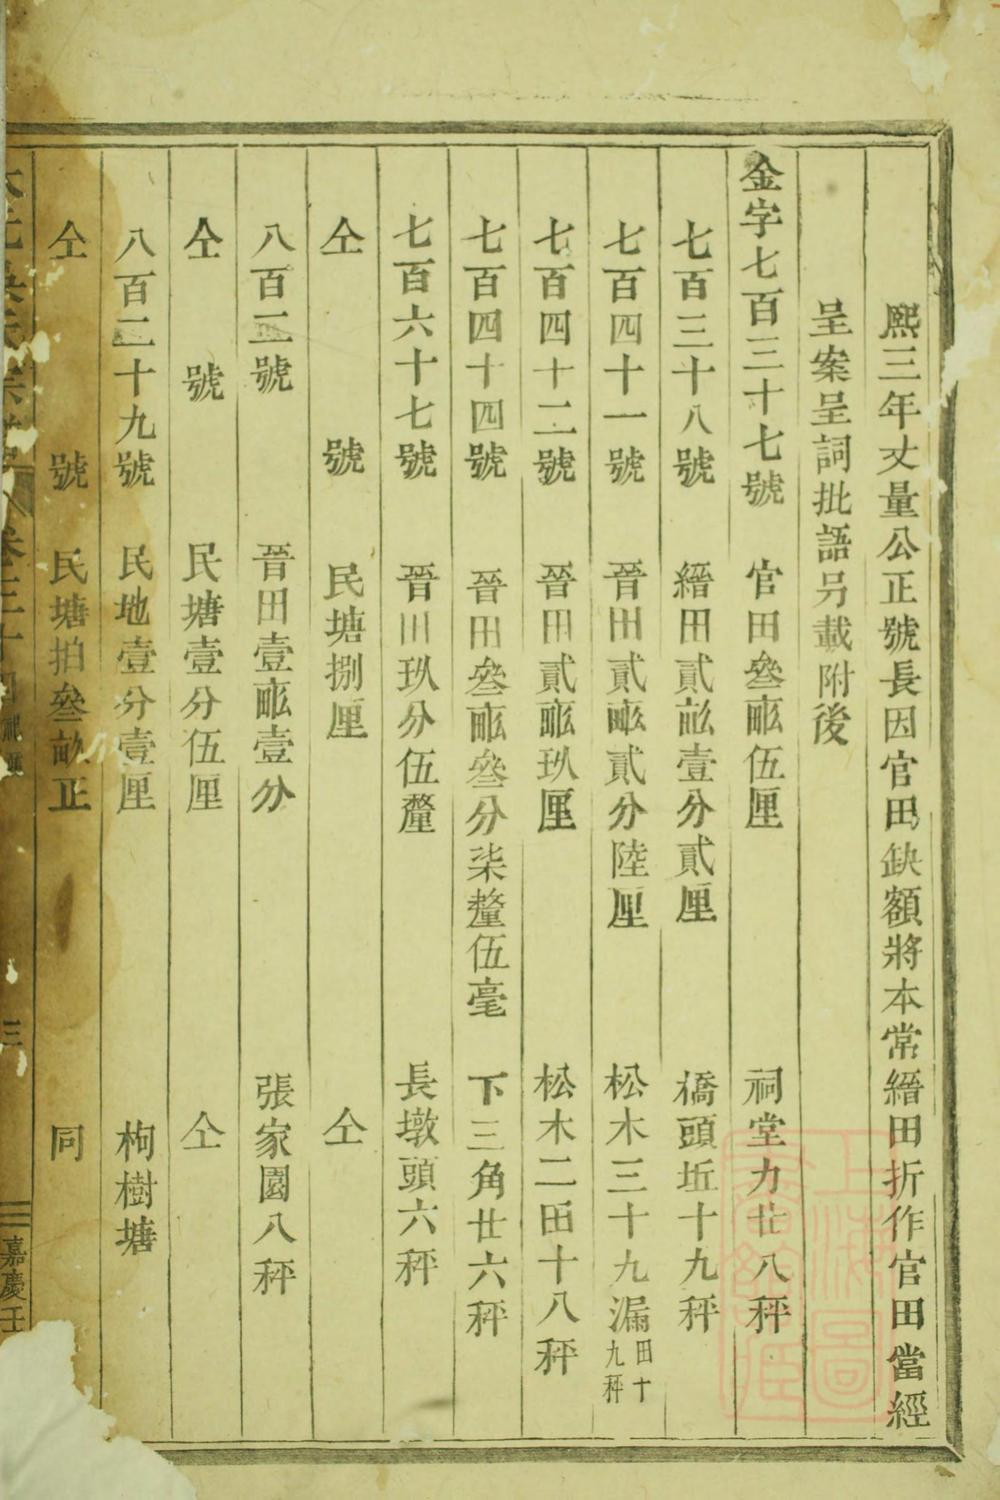 熙三年丈量公正號長因官田缺額將本常縉田折作官田當經
呈案呈詞批語另載附後
金字七百三十七號　官田叄畝伍厘　祠堂力廿八秤
七百三十八號　縉田貳畝壹分貳厘　橋頭坵十九秤
七百四十一號　晉田貳畝貳分陸厘　松木三十九漏田十九秤
七百四十二號　晉田貳畝玖厘　松木二田十八秤
七百四十四號　晉田叄畝叄分柒釐伍毫　下三角廿六秤
七百六十七號　晉田玖分伍釐　長墩頭六秤
仝號　民塘捌厘　仝
八百二號　晉田壹畝壹分　張家園八秤
仝號　民塘壹分伍厘　仝
八百二十九號　民地壹分壹厘　枸樹塘
仝號　民塘拍叄畝正　同
卷三十　三　嘉慶壬